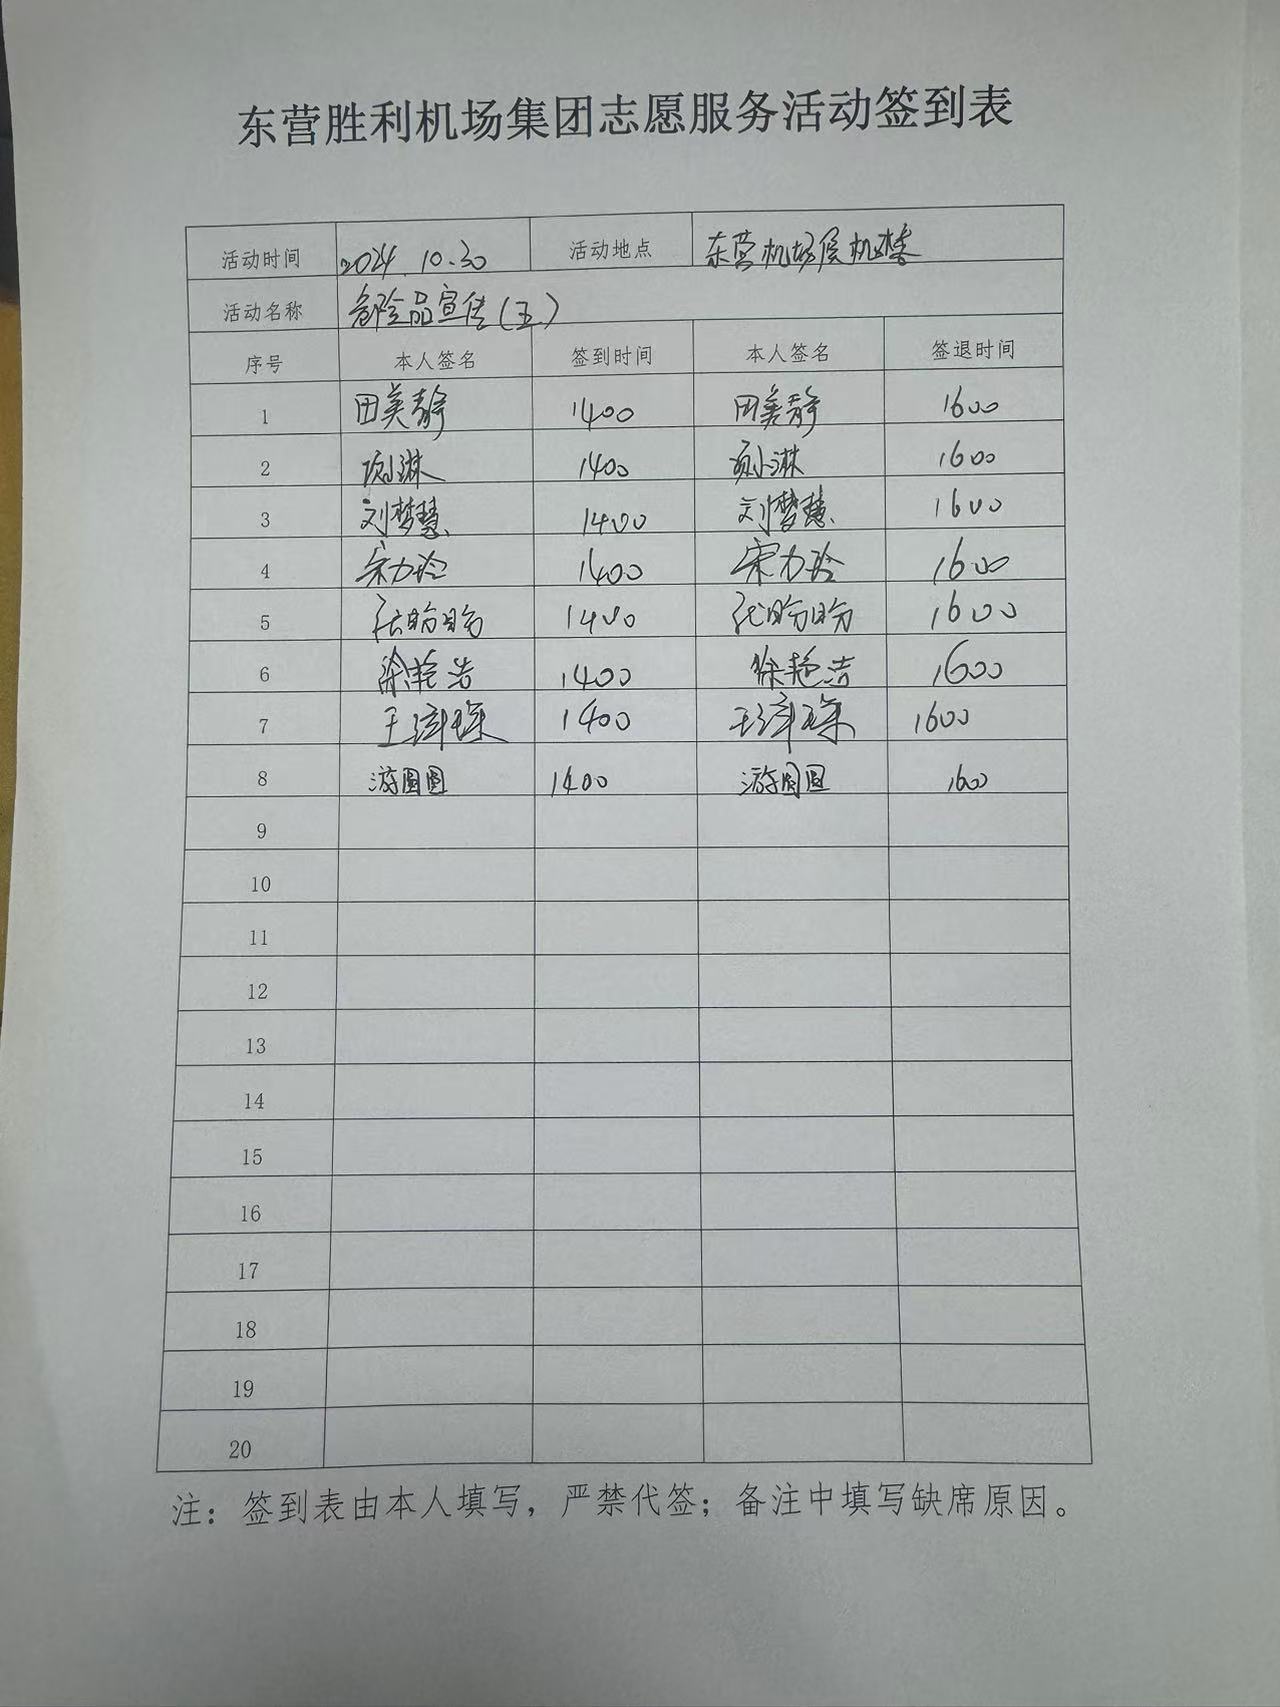 东营胜利机场集团志愿服务活动签到表
活动时间 2024.10.30 活动地点 东营机场候机楼
活动名称 危险品宣传(五)
序号 本人签名 签到时间 本人签名 签退时间
1 田美静 1400 田美静 1600
2 1400 1600
3 刘梦慧 1400 刘梦慧 1600
4 宋力玲 1400 宋力玲 1600
5 张盼盼 1400 张盼盼 1600
6 徐艳洁 1400 徐艳洁 1600
7 王 1400 王 1600
8 游圆圆 1400 游圆圆 1600
9
10
11
12
13
14
15
16
17
18
19
20
注：签到表由本人填写，严禁代签；备注中填写缺席原因。